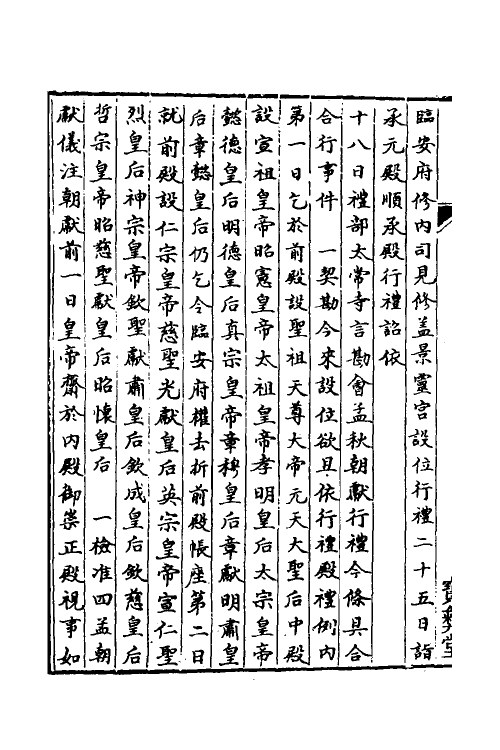 臨安府修內司見修蓋景靈宮設位行禮二十五日詣
承元殿順承殿行禮詔依
十八日禮部太常寺言勘會孟秋朝獻行禮今條具合
合行事件　一契勘今來設位欲且依行禮殿禮例內
第一日乞於前殿設聖祖天尊大帝元天大聖后中殿
設宣祖皇帝昭憲皇帝太祖皇帝孝明皇后太宗皇帝
懿德皇后明德皇后真宗皇帝章穆皇后章獻明肅皇
后章懿皇后仍乞令臨安府權去折前殿帳座第二日
就前殿設仁宗皇帝慈聖光獻皇后英宗皇帝宣仁聖
烈皇后神宗皇帝欽聖獻肅皇后欽成皇后欽慈皇后
哲宗皇帝昭慈聖獻皇后昭懷皇后　一檢准四孟朝
獻儀注朝獻前一日皇帝齋於內殿御崇正殿視事如